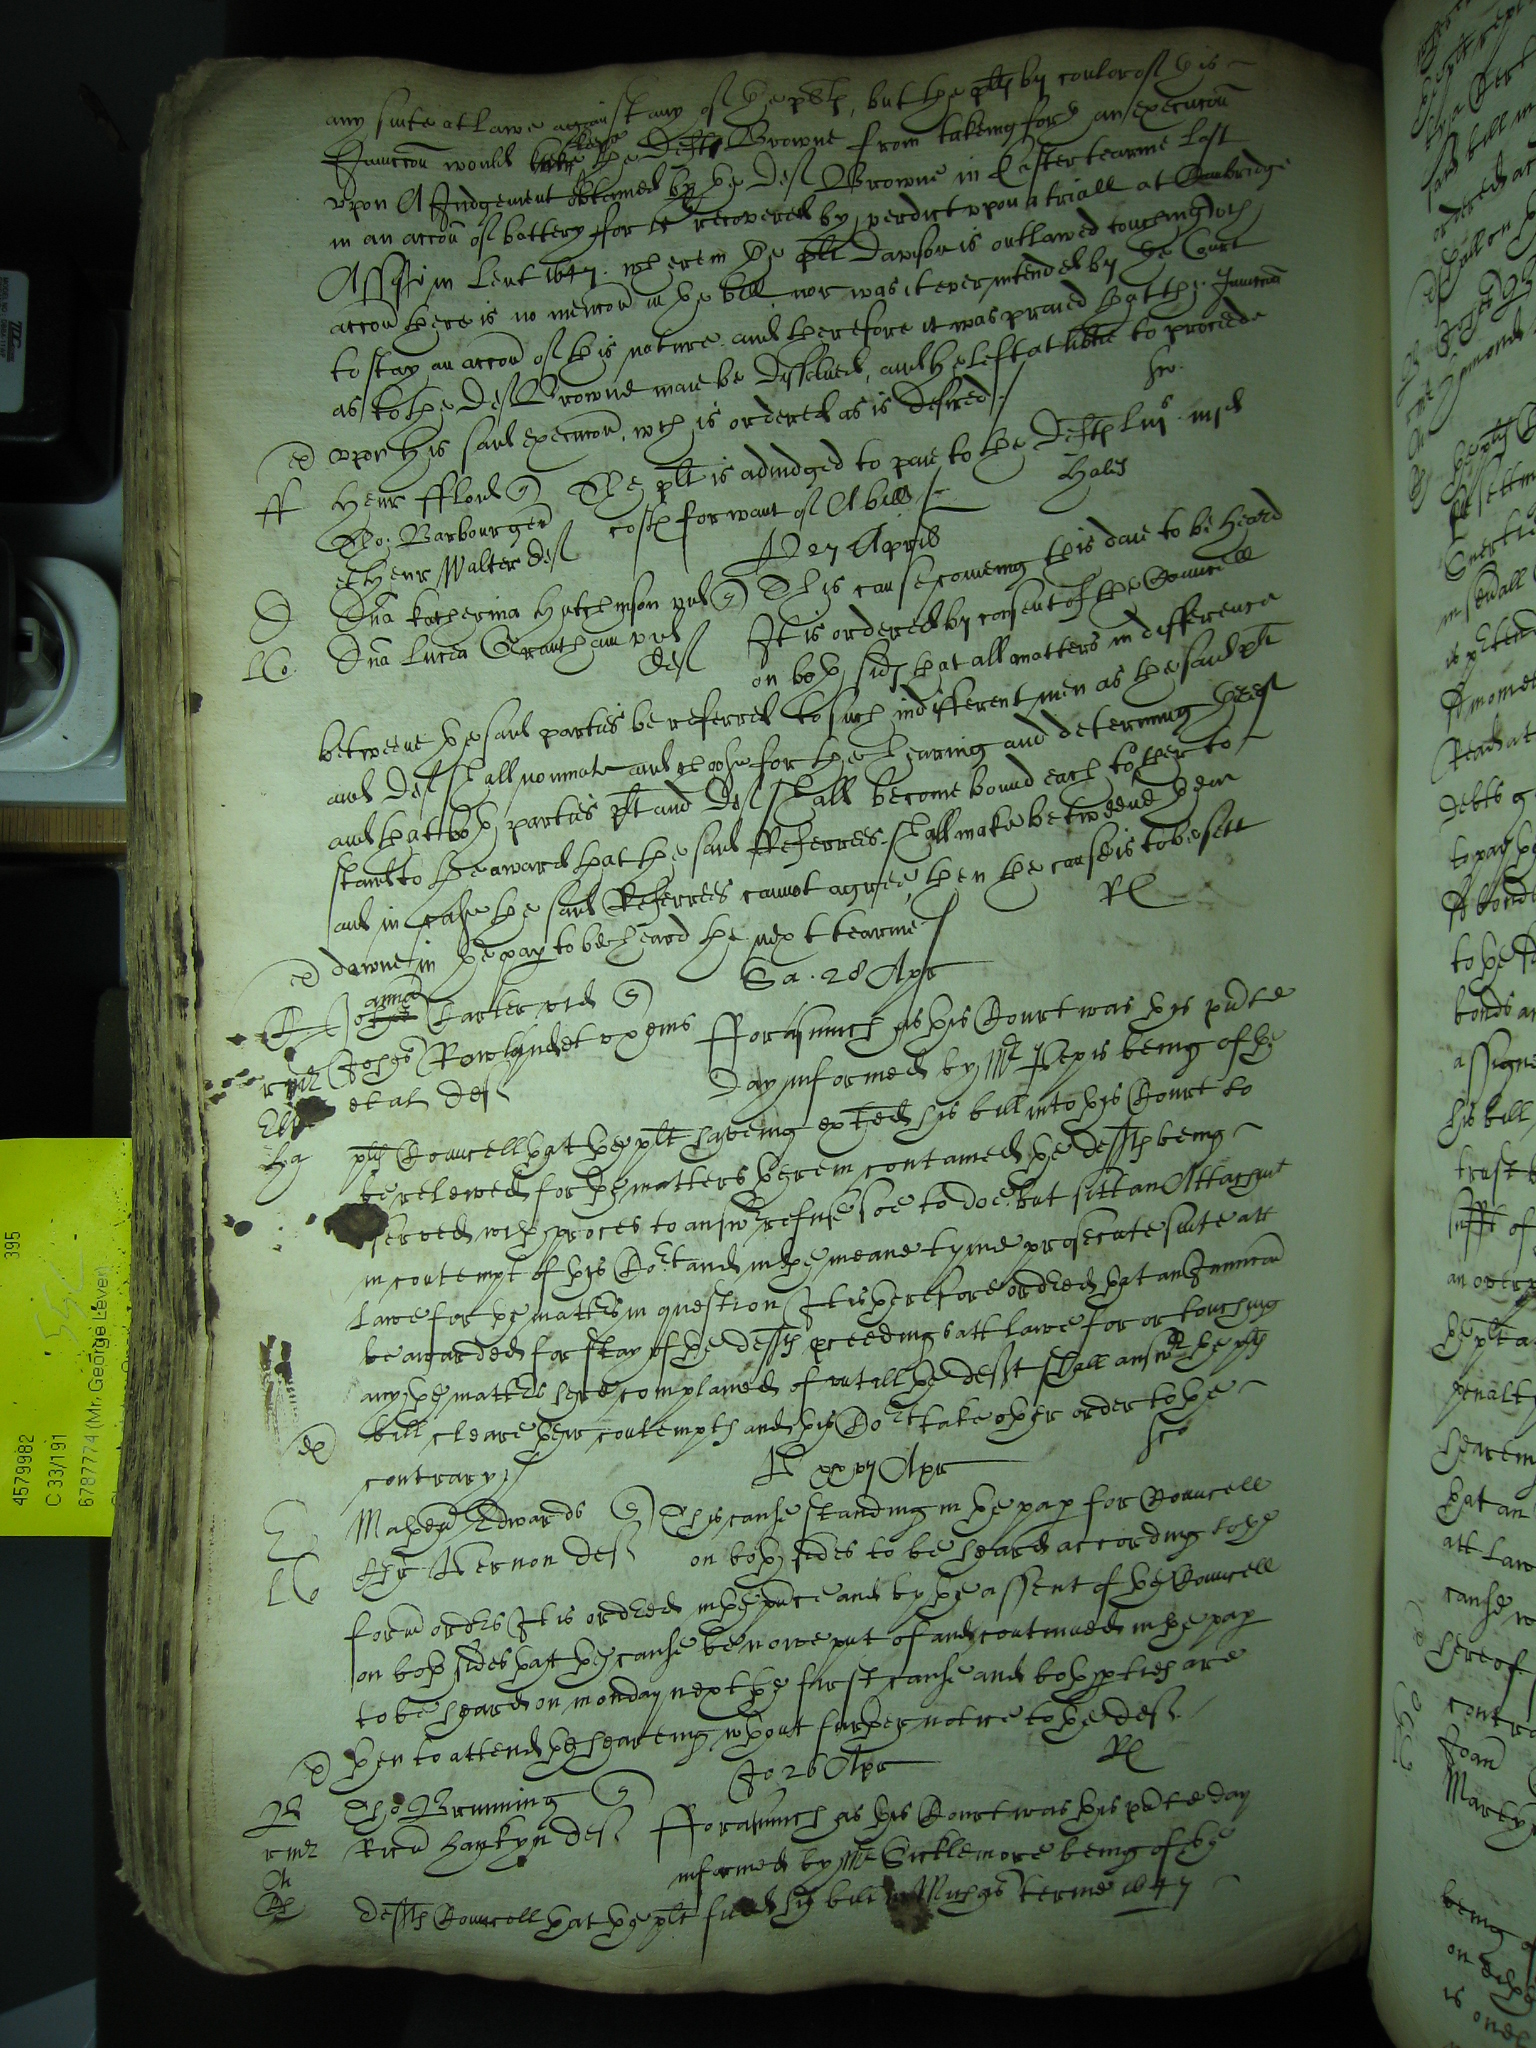 any suite at lawe against any of ye ptes, but the plts by coulor of this
Iniunccon would keepe the Deft Browne from takeing forth an execucon
vpon A Iudgement obteined by ye Def Browne in Easter tearme last
in an accon of battery for it recovered by verdict vpon a triall at Cambridge
Assizes in Lent 1647. wherein ye plt Dawson is outlawed touching wch
accon there is no mencon in ye bill, nor was it ever intended by ye Court
to stay an accon of this nature. and therefore it was praied that the Iniunccon
as to the Def Browne maie be dissolued, and he left at libtie to proceede
vpon his said execucon, wch is ordered as is desired
Henr fflood
The plt is adiudged to paie to the Defts liijs iiijd
Tho: Barbour gen
costs for want of A bill
Hales
et Henr Walter def
27 Aprilis
D
Dna Katherina Hutchinson vid
This cause comeing this daie to be heard
Dna Lucia Grantham vid
def
It is ordered by consent of the Councell
on both sides that all matters in difference
betweene ye said parties be referred to such indifferent men as the said plt
and Def shall nominate and choose for the hearing and determining thereof
and that both parties plt and Def shall become bound each to other to
stand to the award that the said Referrees shall make betweene them
and in case the said Referrees cannot agree then the cause is to be sett
downe in ye paper to be heard the next tearme
Sa. 28 Apr
Carter vid
Johes Rowland et vx eius
et al def
fforasmuch as this Court was this pnte
day informed by Mr Pepis being of the
plts Councell that the plt haveing exhited his bill into this Court to
be releived for the matters therein contained the defts being
served with proces to answr refuse soe to doe but sitt an Attachmt
in contempt of this Cort and in the meane tyme prosecute suite att
Lawe for the mattrs in question It is therefore ordred that an Iniunccon
be awarded for stay of the defts pceedings att lawe for or touching
any the mattrs here complained of vntill the deft shall answr the plts
bill cleare their contempts and this Cort take other order to the
contrary
Apr
Mathew Edwards
This cause standing in the pap for Councell
Vernon def
on both sides to be heard according to the
form ordrs It is ordred in the pnce and by the assent of the Councell
on both sides that the cause be nowe put of and continued in the pap
to be heard on monday next the first cause and both pties are
then to attend the heareing wthout further notice to the def
Jo 26 Apr
Tho Brunning
Ricus Hankyn def
fforasmuch as this Court was this pnte day
informed by Mr Sicklemore being of the
defts Councell that the plt filed his bill in Michas terme 1647
4579982 395
C 33/191
6787774 (Mr. George Lever)